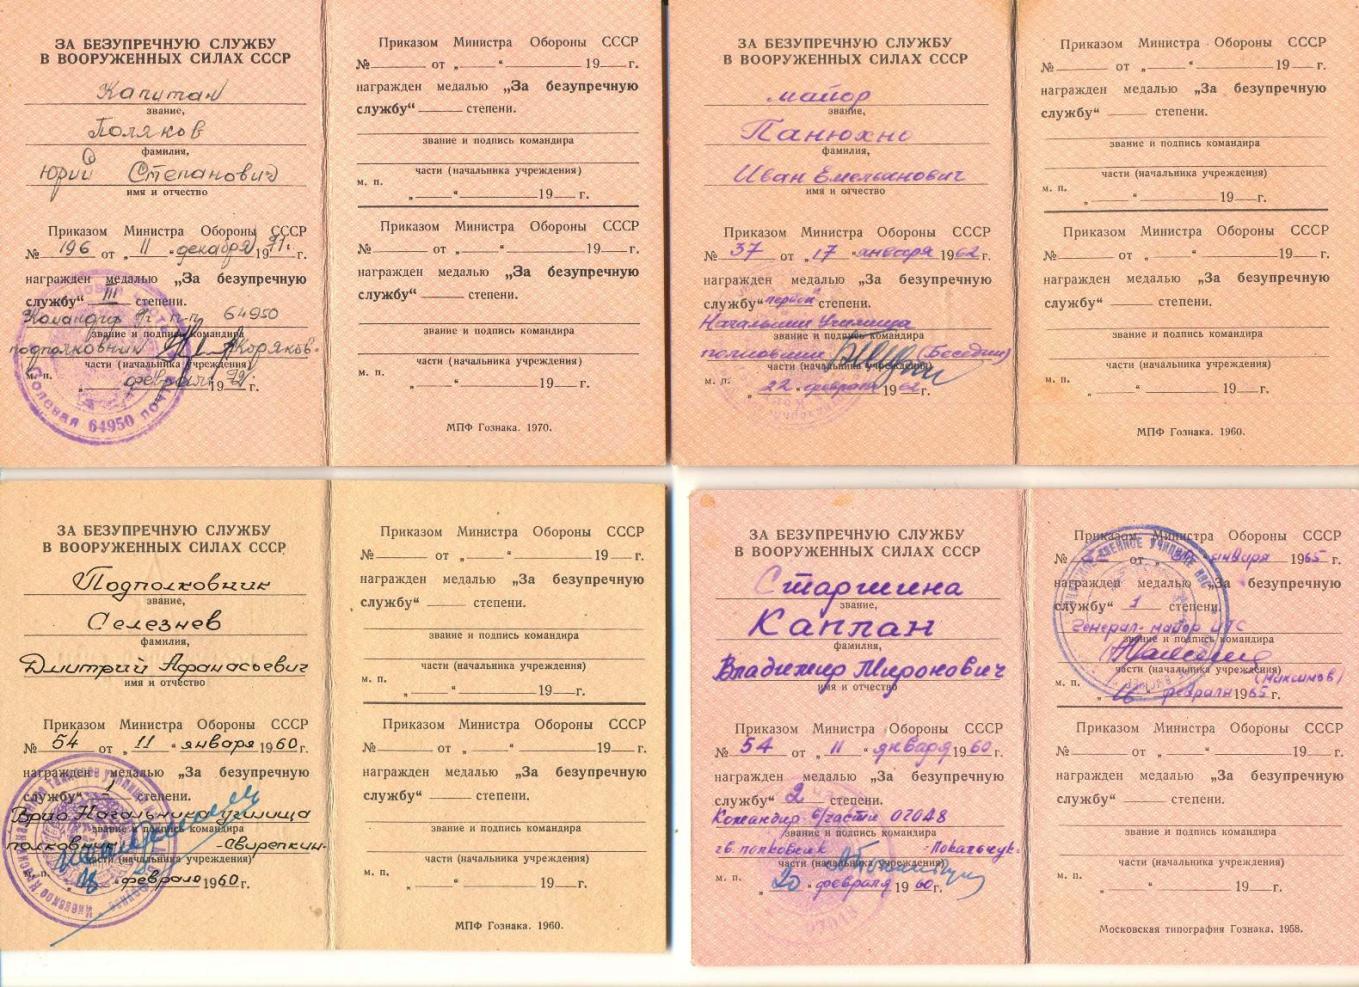 ЗА БЕЗУПРЕЧНУЮ СЛУЖБУ
В ВООРУЖЕННЫХ СИЛАХ СССР
Капитан
звание,
Поляков
фамилия,
Юрий Степанович
имя и отчество
Приказом Министра Обороны СССР
№ 196 от „11“ декабря 1991 г.
награжден медалью „За безупречную
службу“ III степени.
Командир в/ч п-п 64950
звание и подпись командира
подполковник Коряков
части (начальника учреждения)
м. п. „ “ февраля 1992 г.
Полевая почта 64950
Приказом Министра Обороны СССР
№ от „ “ 19 г.
награжден медалью „За безупречную
службу“ степени.
звание и подпись командира
части (начальника учреждения)
м. п. „ “ 19 г.
Приказом Министра Обороны СССР
№ от „ “ 19 г.
награжден медалью „За безупречную
службу“ степени.
звание и подпись командира
части (начальника учреждения)
м. п. „ “ 19 г.
МПФ Гознака. 1970.
ЗА БЕЗУПРЕЧНУЮ СЛУЖБУ
В ВООРУЖЕННЫХ СИЛАХ СССР
майор
звание,
Панюхно
фамилия,
Иван Емельянович
имя и отчество
Приказом Министра Обороны СССР
№ 37 от „17“ января 1962 г.
награжден медалью „За безупречную
службу“ „первой“ степени.
Начальник Училища
звание и подпись командира
полковник (Беседин)
части (начальника учреждения)
м. п. „22“ февраля 1962 г.
Приказом Министра Обороны СССР
№ от „ “ 19 г.
награжден медалью „За безупречную
службу“ степени.
звание и подпись командира
части (начальника учреждения)
м. п. „ “ 19 г.
Приказом Министра Обороны СССР
№ от „ “ 19 г.
награжден медалью „За безупречную
службу“ степени.
звание и подпись командира
части (начальника учреждения)
м. п. „ “ 19 г.
МПФ Гознака. 1960.
ЗА БЕЗУПРЕЧНУЮ СЛУЖБУ
В ВООРУЖЕННЫХ СИЛАХ СССР
Подполковник
звание,
Селезнев
фамилия,
Дмитрий Афанасьевич
имя и отчество
Приказом Министра Обороны СССР
№ 54 от „11“ января 1960 г.
награжден медалью „За безупречную
службу“ 1 степени.
Врио Начальника училища
звание и подпись командира
полковник -Свирепкин-
части (начальника учреждения)
м. п. „ “ февраля 1960 г.
Приказом Министра Обороны СССР
№ от „ “ 19 г.
награжден медалью „За безупречную
службу“ степени.
звание и подпись командира
части (начальника учреждения)
м. п. „ “ 19 г.
Приказом Министра Обороны СССР
№ от „ “ 19 г.
награжден медалью „За безупречную
службу“ степени.
звание и подпись командира
части (начальника учреждения)
м. п. „ “ 19 г.
МПФ Гознака. 1960.
ЗА БЕЗУПРЕЧНУЮ СЛУЖБУ
В ВООРУЖЕННЫХ СИЛАХ СССР
Старшина
звание,
Каплан
фамилия,
Владимир Миронович
имя и отчество
Приказом Министра Обороны СССР
№ 54 от „11“ января 1960 г.
награжден медалью „За безупречную
службу“ 2 степени.
Командир в/части 02048
звание и подпись командира
гв. полковник
части (начальника учреждения)
м. п. „20“ февраля 1960 г.
Приказом Министра Обороны СССР
№ от „ “ января 1965
награжден медалью „За безупречную
службу“ 1 степени.
Генерал-майор ИТС
звание и подпись командира
части (начальника учреждения)
(Максимов)
м. п. „16“ февраля 1965 г.
Приказом Министра Обороны СССР
№ от „ “ 19 г.
награжден медалью „За безупречную
службу“ степени.
звание и подпись командира
части (начальника учреждения)
м. п. „ “ 19 г.
Московская типография Гознака. 1958.